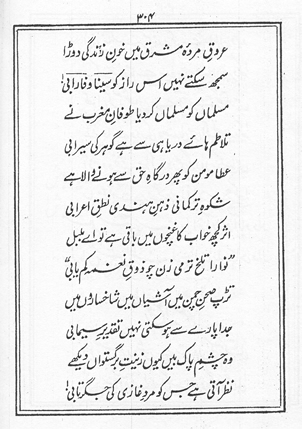 ۳۰۴
عروقِ مردۂ مشرق میں خونِ زندگی دوڑا
سمجھ سکتے نہیں اس راز کو سینا و فارابی!
مسلماں کو مسلماں کر دیا طوفانِ مغرب نے
تلاطم ہائے دریا ہی سے ہے گوہر کی سیرابی
عطا مومن کو پھر درگاہِ حق سے ہونے والا ہے
شکوہِ ترکمانی ذہنِ ہندی نطقِ اعرابی
اثر کچھ خواب کا غنچوں میں باقی ہے تو اے بلبل
"نوا را تلخ تر می زن چو ذوقِ نغمہ کم یابی"
تڑپ صحنِ چمن میں آشیاں میں شاخساروں میں
جدا پارے سے ہو سکتی نہیں تقدیرِ سیمابی
وہ چشمِ پاک بیں کیوں زینتِ برگستواں دیکھے
نظر آتی ہے جس کو مردِ غازی کی جگر تابی!